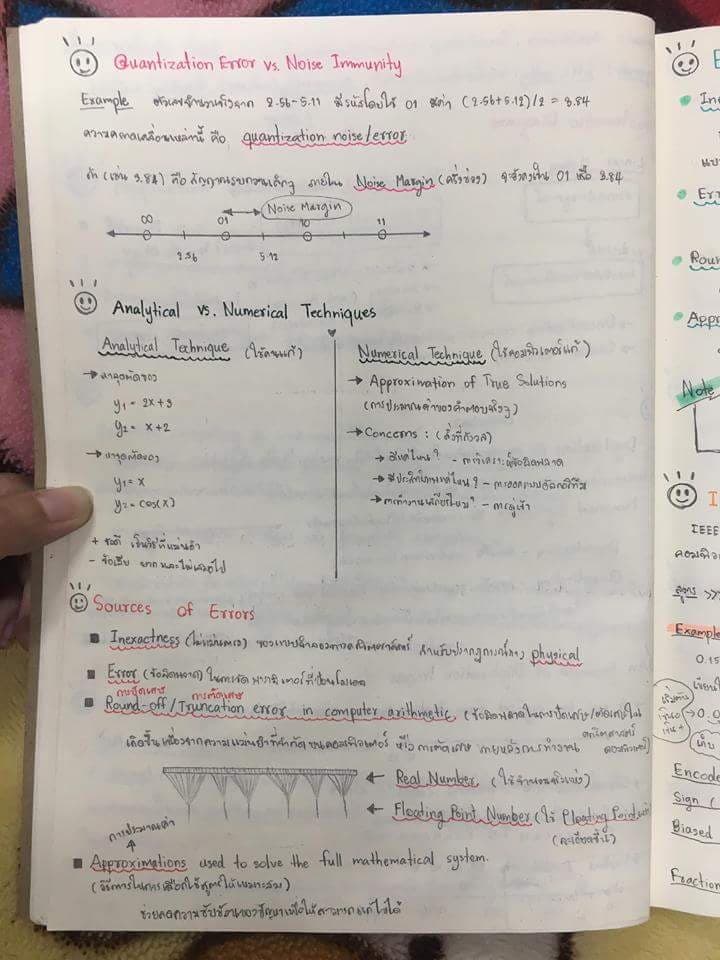 Quantization Error vs. Noise Immunity
Example ตัวเลขจำนวนจริงจาก 2.56-5.11 มีรหัสโดยใช้ 01 มีค่า (2.56+5.12)/2 = 3.84
ความคลาดเคลื่อนเหล่านี้ คือ quantization noise/error
ถ้า (เช่น 3.84) คือ สัญญาณรบกวนเล็กๆ ภายใน Noise Margin (ครึ่งช่อง) จะยังคงเป็น 01 หรือ 3.84
Noise Margin
00 01 10 11
2.56 5.12
Analytical vs. Numerical Techniques
Analytical Technique (ใช้คนแก้)
→ หาจุดตัดของ
y1 = 2x+3
y2 = x+2
→ หาจุดตัดของ
y1 = x
y2 = cos(x)
+ ข้อดี เป็นวิธีที่แม่นยำ
- ข้อเสีย ยากและไม่เสมอไป
Numerical Technique (ใช้คอมพิวเตอร์แก้)
→ Approximation of True Solutions
(การประมาณค่าของคำตอบจริงๆ)
→ Concerns : (สิ่งที่กังวล)
→ ดีแค่ไหน? - การวิเคราะห์ข้อผิดพลาด
→ มีประสิทธิภาพแค่ไหน? - การออกแบบอัลกอริทึม
→ การทำงานเสถียรไหม? - การลู่เข้า
Sources of Errors
Inexactness (ไม่แม่นตรง) ของแบบจำลองทางคณิตศาสตร์ สำหรับปรากฏการณ์ทาง physical
Error (ข้อผิดพลาด) ในการวัด พารามิเตอร์ที่ป้อนโมเดล
การปัดเศษ การตัดเศษ
Round-off/Truncation error in computer arithmetic (ข้อผิดพลาดในการปัดเศษ/ตัดเศษใน
คณิตศาสตร์
คอมพิวเตอร์)
เกิดขึ้นเนื่องจากความแม่นยำที่จำกัดบนคอมพิวเตอร์ หรือ การตัดเศษ ภายหลังการทำงาน
← Real Number (ใช้จำนวนจริง)
← Floating Point Number (ใช้ Floating Point
(ละเอียดขึ้น)
การประมาณค่า
Approximations used to solve the full mathematical system.
(วิธีการในการเลือกใช้สูตรให้เหมาะสม)
ช่วยลดความซับซ้อนของปัญหาเพื่อให้สามารถแก้ไขได้
E
Ine
แบ
Err
Roun
Appr
Note
I
IEEE
คอมพิว
สูตร >>
Example
0.15
0.0
เก็บ
Encode
Sign (
Biased
Fraction